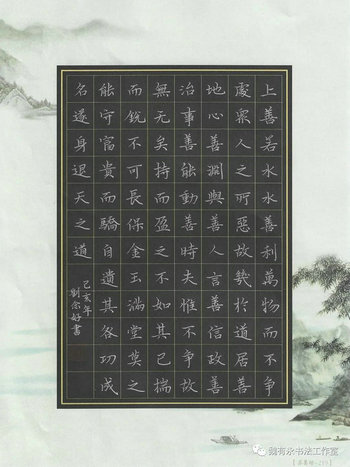 上善若水水善利萬物而不爭
處衆人之所惡故幾於道居善
地心善淵與善人言善信政善
治事善能動善時夫惟不爭故
無尤矣持而盈之不如其已揣
而銳不可長保金玉滿堂莫之
能守富貴而驕自遺其咎功成
名遂身退天之道
己亥年
劉宗好書
魏有永书法工作室